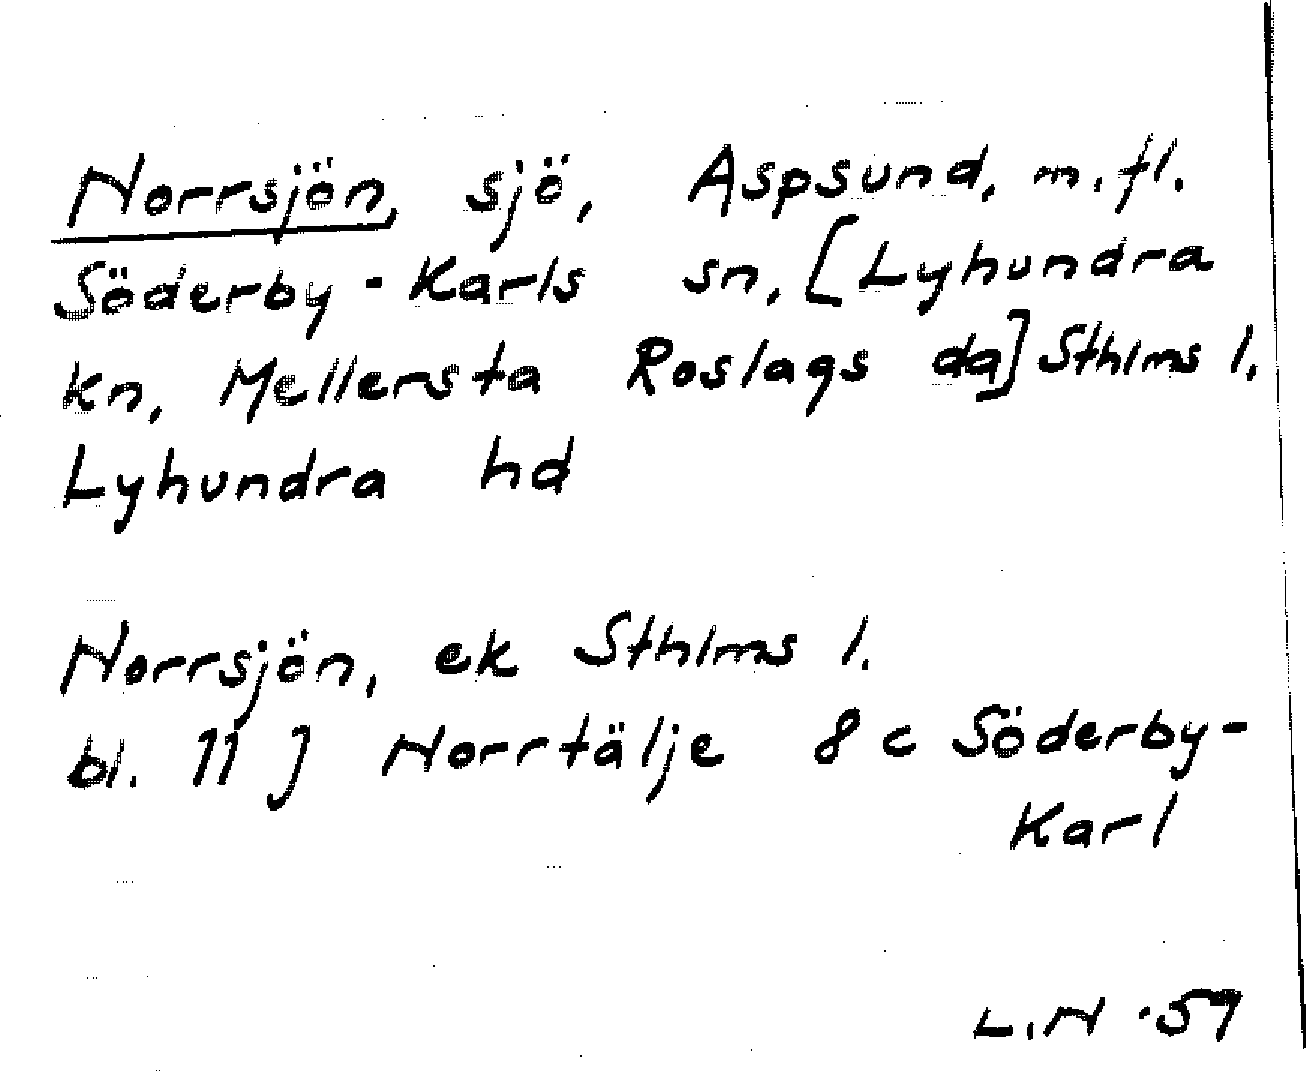 Norrsjön, sjö, Aspsund, m.fl.
Söderby-Karls sn, [Lyhundra
kn, Mellersta Roslags da] Sthlms l.
Lyhundra hd
Norrsjön, ek Sthlms l.
bl. 11 J Norrtälje 8 c Söderby-
Karl
L.N -59